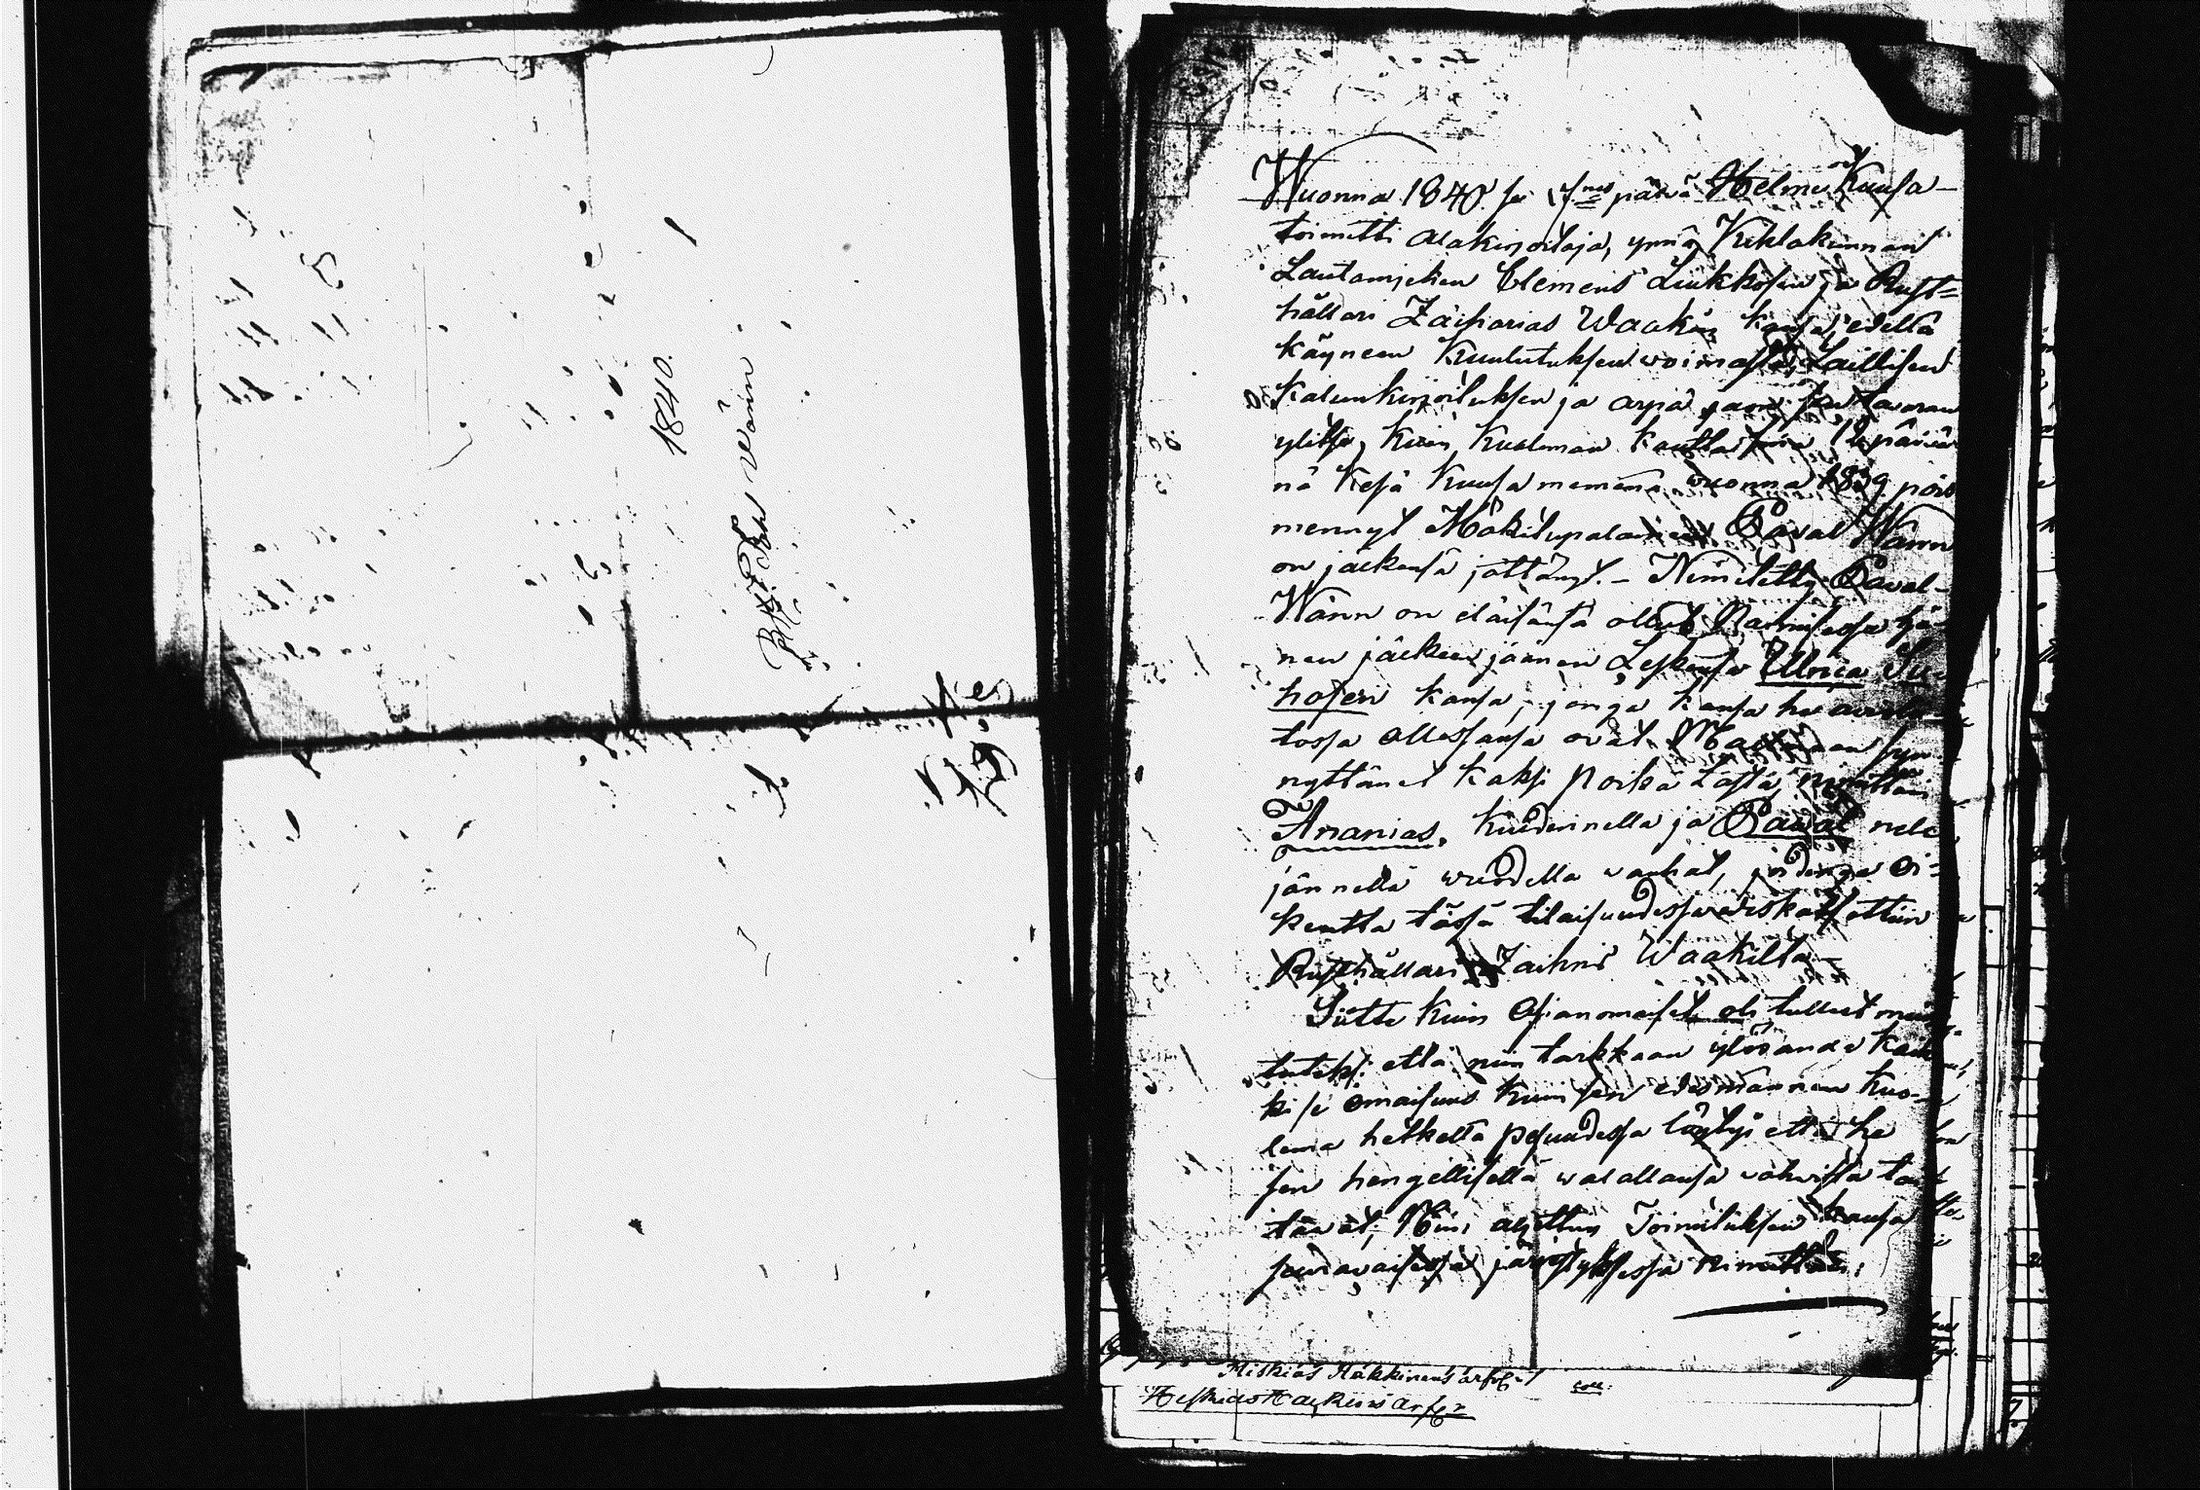 1840.
Wänn
Wuonna 1840 se päivä Helme Kuusa
toimitti Alakirjoitaja, ynnä Kihlakunnan
Lautamjehen Clemens Liukkosen ja Rust=
hållari Zacharias Waakin kansa, edellä
käyneen Kuulutuksen woimasta, Laillisen
Kalunkirjoituksen ja arpa jaon sen tavaran
ylitse, kuin Kuoleman kautta 12 päivä
nä Kesä Kuusa mennenä wuonna 1839 pois
mennyt Mäkitupalainen Paval Wänn
on jälkensä jättänyt. - Nimitetty Paval
Wänn on eläisänsä ollut Naimisessa hä-
nen jälkeen jäänen Leskensä Ulrica Su-
hosen kansa, jonga kansa he avio-
tossa ollessansa ovat Maailmaan syn-
nyttänet kaksi Poika Lasta, nimittäin
Ananias, kuudennella ja Paval nel-
jännellä wuodella vanhat, joidenga oi-
keutta tässä tilaisuudessa waiskattettiin
Rusthållari Zachris Waakilta -
Siitte kuin Asianomaiset oli tullut mui-
tuteksi että niin tarkkaan ylösanda kaik-
ki se omaisuus kuin sen edesmännen kuo-
lema hetkellä pesuudessa löytyi että he
sen hengellisellä walallansa vahvista tai-
tävät, Niin aljettin Toimituksen kansa
seuravaisessa järjestyksessä nimittäin;
Hiskias Häkkinens arfvr